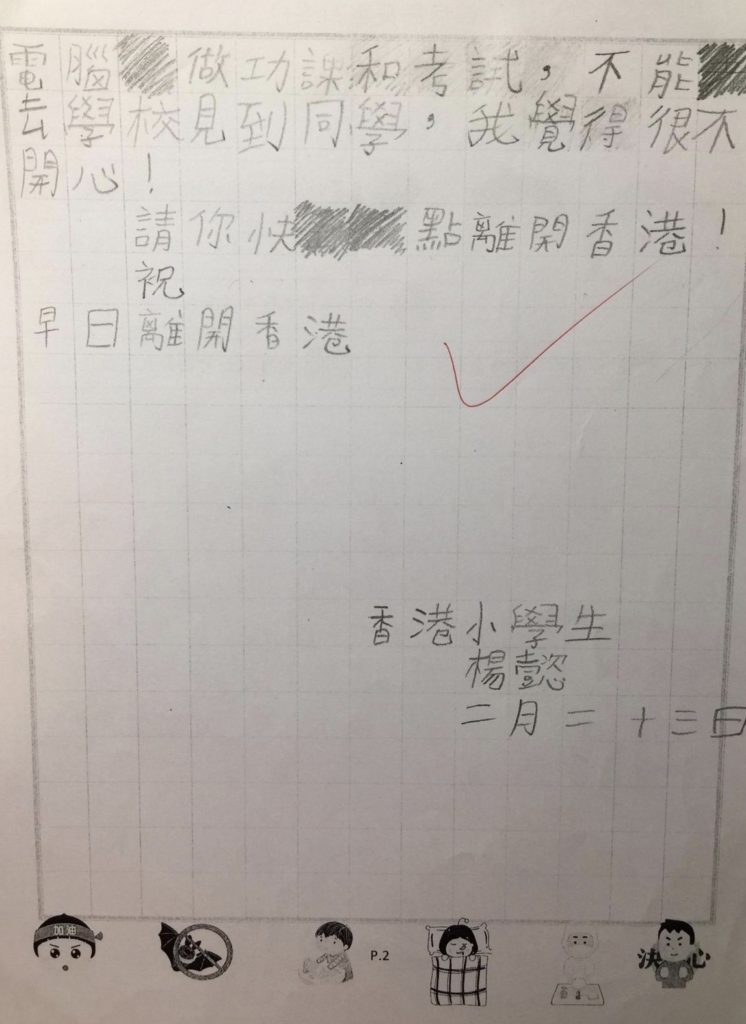 電腦做功課和考試，不能
去學校見到同學，我覺得很不
開心！
請你快點離開香港！
祝
早日離開香港
香港小學生
楊懿
二月二十三日
加油
P.2
決心